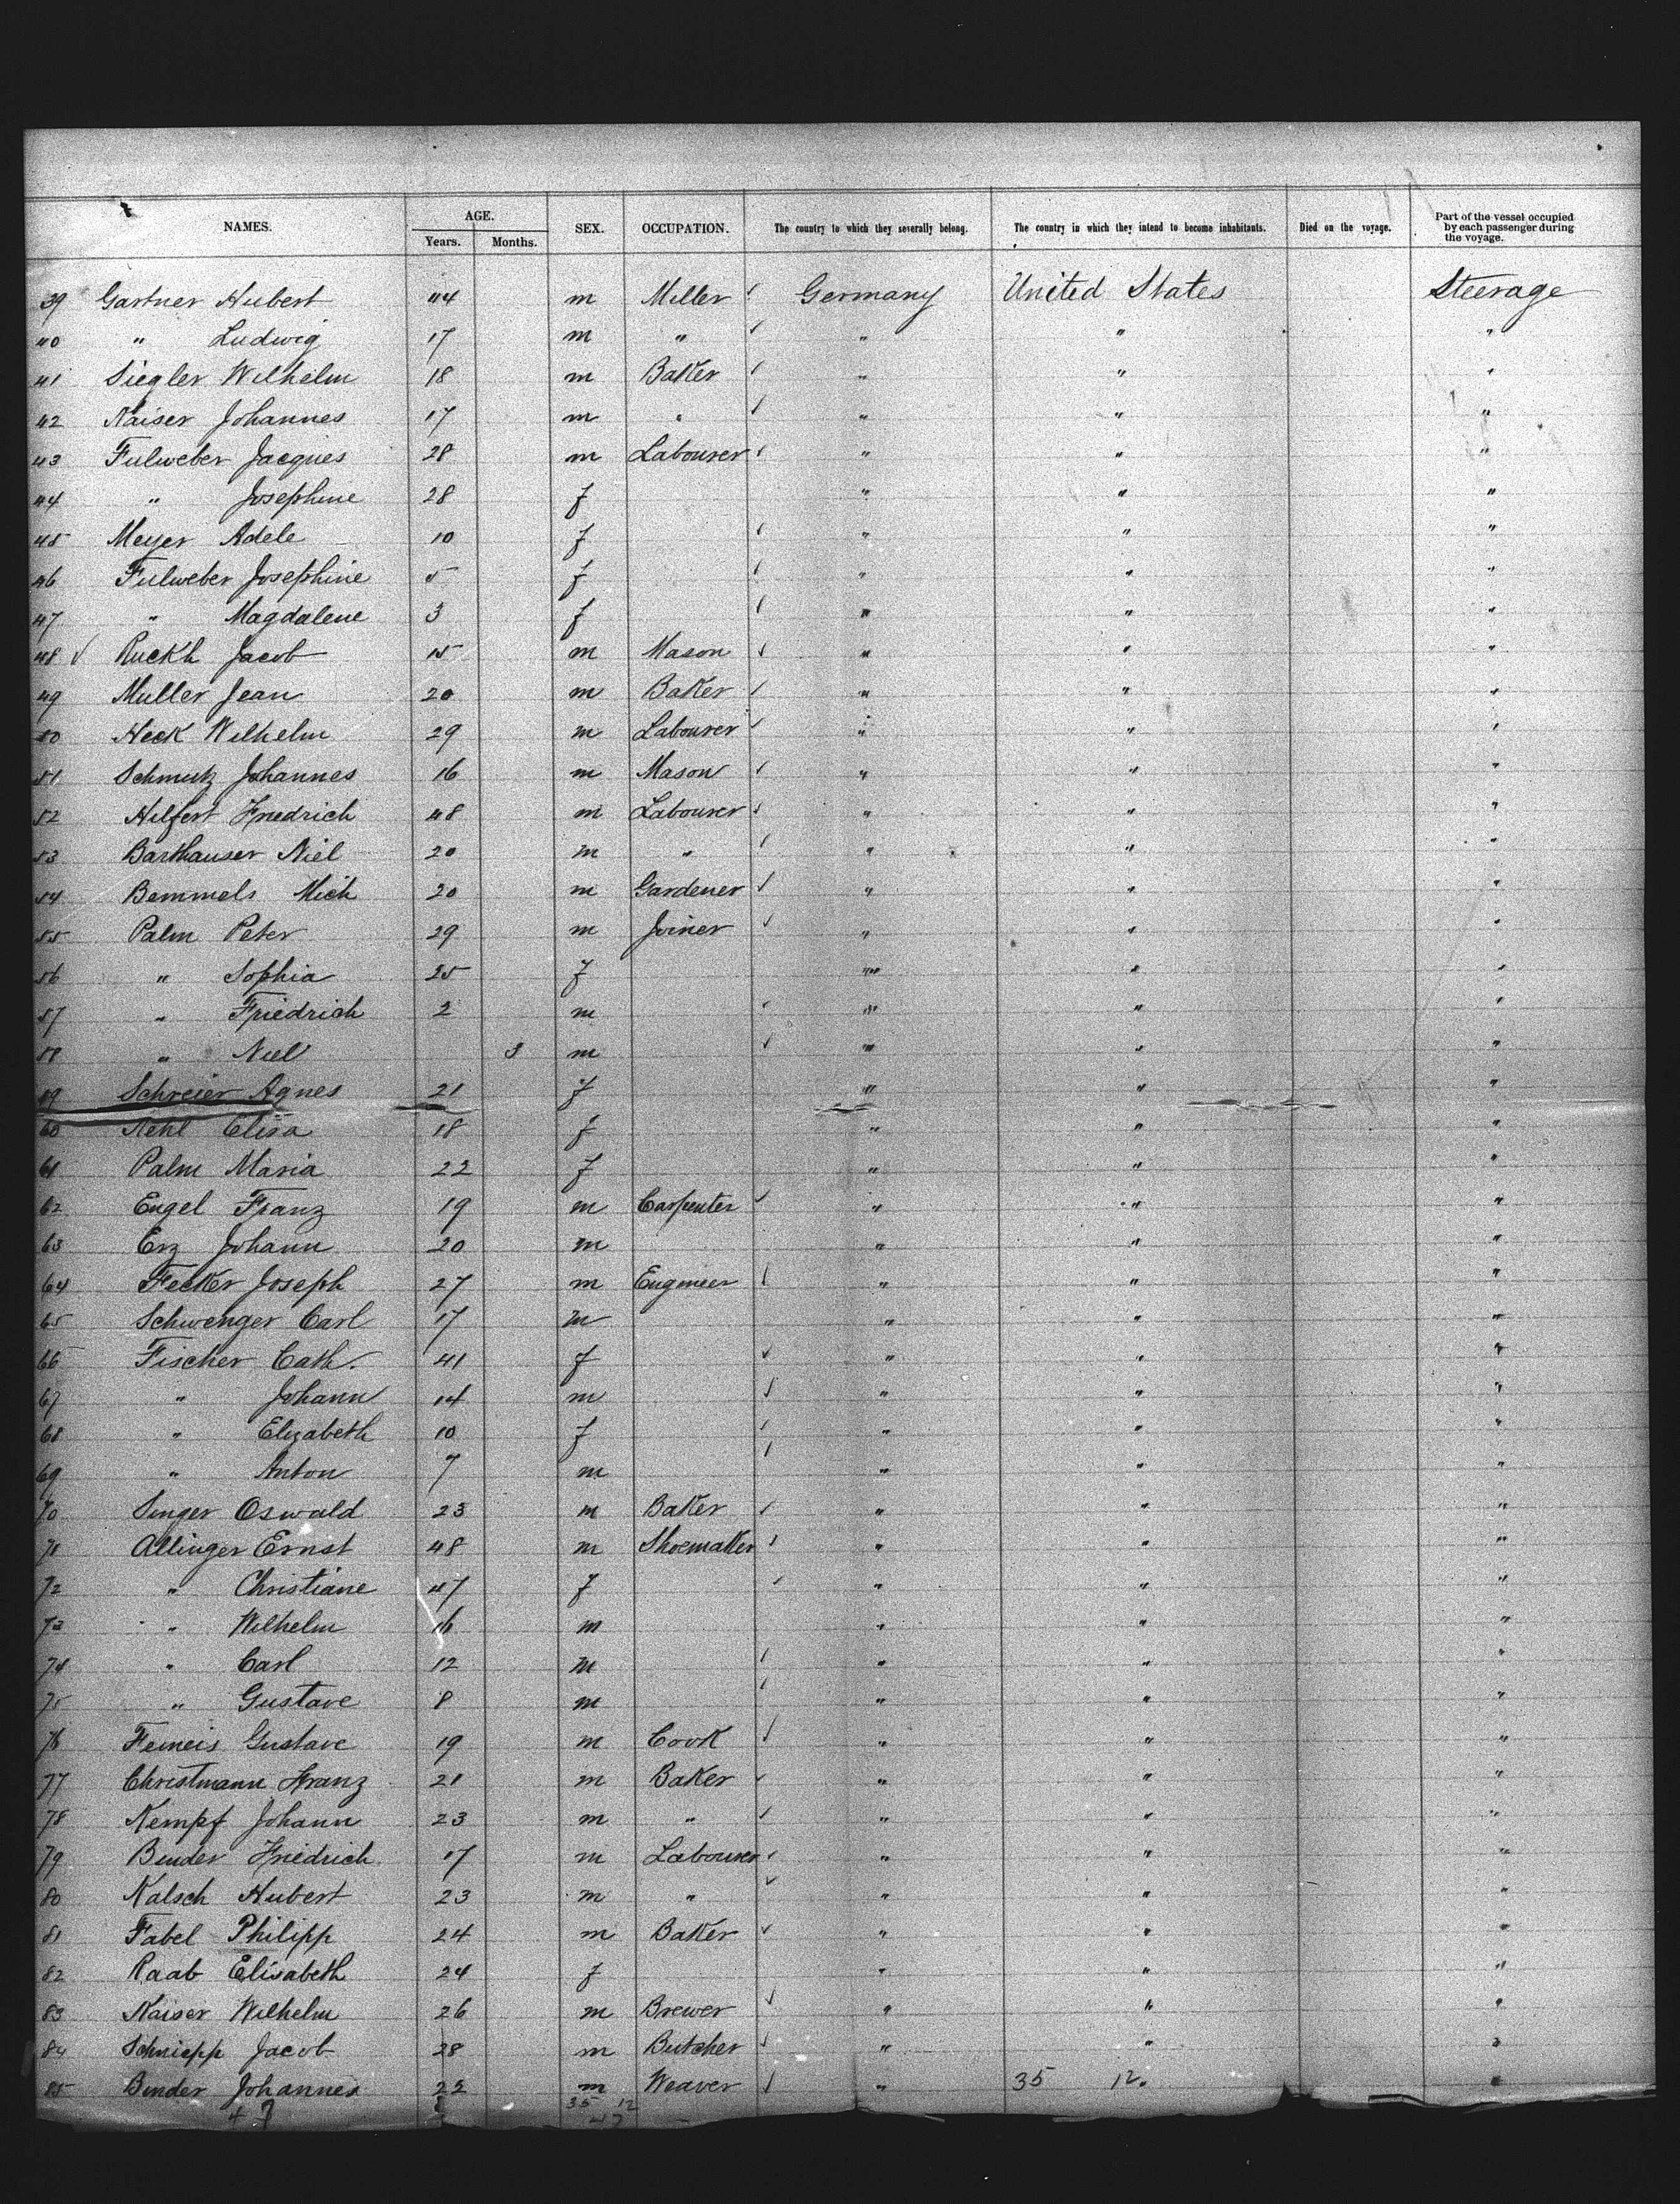 NAMES. AGE. SEX. OCCUPATION. The country to which they severally belong. The country in which they intend to become inhabitants. Died on the voyage. Part of the vessel occupied by each passenger during the voyage.
Years. Months.
39 Gartner Hubert 44 m Miller Germany United States Steerage
40 " Ludwig 17 m " " " "
41 Siegler Wilhelm 18 m Baker " " "
42 Kaiser Johannes 17 m " " " "
43 Fulweber Jacques 28 m Labourer " " "
44 " Josephine 28 f " " "
45 Meyer Adele 10 f " " "
46 Fulweber Josephine 5 f " " "
47 " Magdalene 3 f " " "
48 ✓ Ruckh Jacob 15 m Mason " " "
49 Muller Jean 20 m Baker " " "
50 Heck Wilhelm 29 m Labourer " " "
51 Schmutz Johannes 16 m Mason " " "
52 Hilfert Friedrich 48 m Labourer " " "
53 Barthauser Niel 20 m " " " "
54 Bemmels Mich 20 m Gardener " " "
55 Palm Peter 29 m Joiner " " "
56 " Sophia 25 f " " "
57 " Friedrich 2 m " " "
58 " Niel 3 m " " "
59 Schreier Agnes 21 f " " "
60 Kehl Elisa 18 f " " "
61 Palm Maria 22 f " " "
62 Engel Franz 19 m Carpenter " " "
63 Erz Johann 20 m " " "
64 Fecker Joseph 27 m Engineer " " "
65 Schwenger Carl 17 m " " "
66 Fischer Cath. 41 f " " "
67 " Johann 14 m " " "
68 " Elizabeth 10 f " " "
69 " Anton 7 m " " "
70 Singer Oswald 23 m Baker " " "
71 Allinger Ernst 48 m Shoemaker " " "
72 " Christiane 47 f " " "
73 " Wilhelm 16 m " " "
74 " Carl 12 m " " "
75 " Gustave 8 m " " "
76 Femeis Gustave 19 m Cook " " "
77 Christmann Franz 21 m Baker " " "
78 Kempf Johann 23 m " " " "
79 Binder Friedrich 17 m Labourer " " "
80 Kalsch Hubert 23 m " " " "
81 Fabel Philipp 24 m Baker " " "
82 Raab Elisabeth 24 f " " "
83 Kaiser Wilhelm 26 m Brewer " " "
84 Schniepp Jacob 28 m Butcher " " "
85 Binder Johannes 22 m Weaver " 35 12. "
47 35 12
47